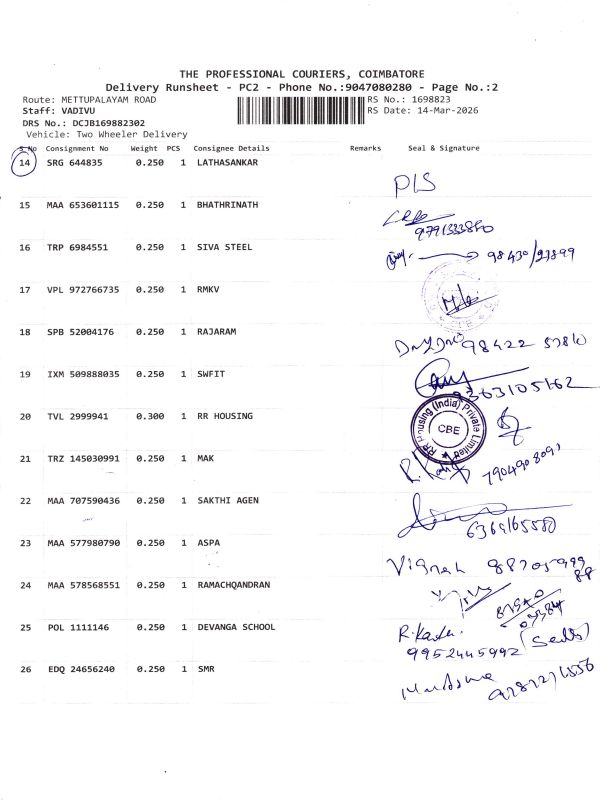 THE PROFESSIONAL COURIERS, COIMBATORE
Delivery Runsheet - PC2 - Phone No.:9047080280 - Page No.:2
Route: METTUPALAYAM ROAD RS No.: 1698823
Staff: VADIVU RS Date: 14-Mar-2026
DRS No.: DCJB169882302
Vehicle: Two Wheeler Delivery
S.No Consignment No Weight PCS Consignee Details Remarks Seal & Signature
14 SRG 644835 0.250 1 LATHASANKAR
PLS
15 MAA 653601115 0.250 1 BHATHRINATH
16 TRP 6984551 0.250 1 SIVA STEEL
17 VPL 972766735 0.250 1 RMKV
18 SPB 52004176 0.250 1 RAJARAM
98422
19 IXM 509888035 0.250 1 SWFIT
9363105162
20 TVL 2999941 0.300 1 RR HOUSING
RR Housing (India) Private Limited
CBE
21 TRZ 145030991 0.250 1 MAK
22 MAA 707590436 0.250 1 SAKTHI AGEN
6369165580
23 MAA 577980790 0.250 1 ASPA
24 MAA 578568551 0.250 1 RAMACHQANDRAN
25 POL 1111146 0.250 1 DEVANGA SCHOOL
9952445992
26 EDQ 24656240 0.250 1 SMR